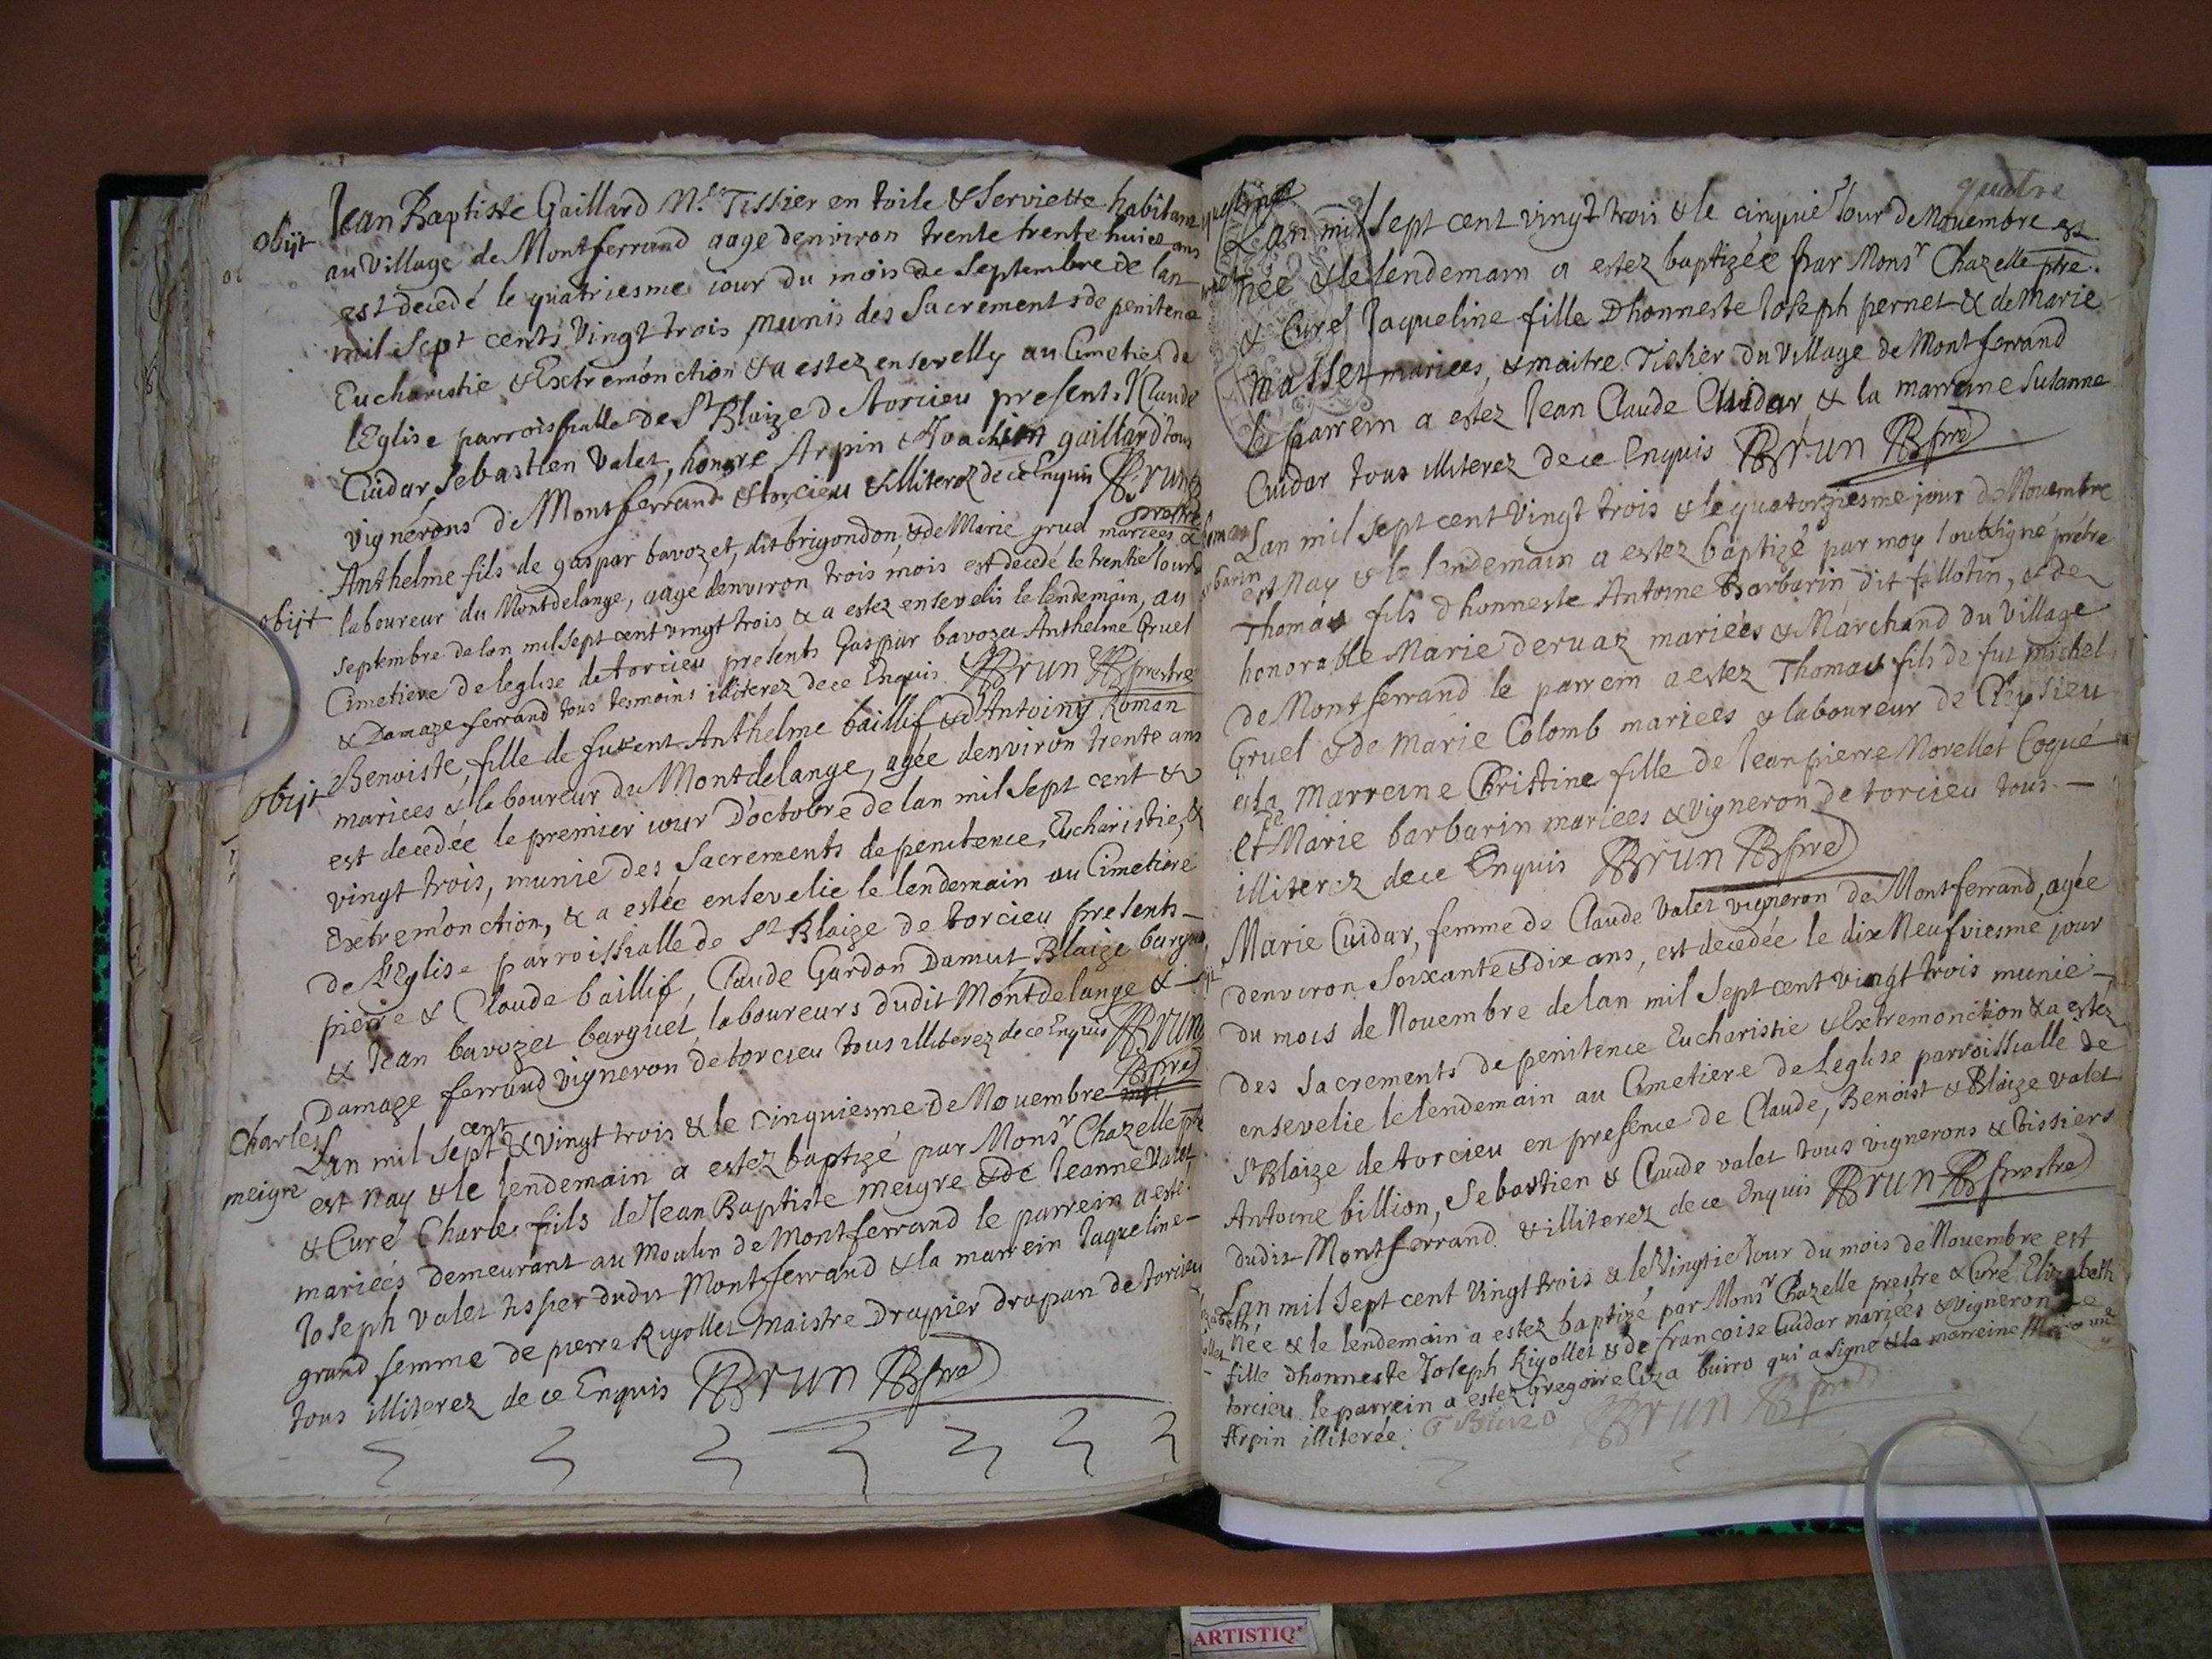 Jean Baptiste Gaillard Mre Tissier en toile & Serviette habitant
obijt
au Village de Montferrand aage denviron trente trente huict ans
est decedé le quatriesme iour du mois de Septembre de lan
mil Sept cents Vingt trois munis des Sacrements de penitence
Eucharistie & Extremonction & a estez ensevelly au Cimetie de
lEglise parroissialle de St Blaize de torcieu presents Claude
Cuidar Sebastien Valet, honore Arpin & Joachim gaillard tous
vignerons de Montferrand & torcieu & illiterez de ce Enquis Brun
prestre
Anthelme fils de gaspar bavozet, dit brigondon, & de Marie gruel mariees &
obijt laboureur du Montdelange, aagé denviron trois mois est decedé le trentie Jour
Septembre de lan mil Sept cent vingt trois & a estez ensevelis le lendemain, au
Cimetiere de leglise de torcieu presents Gaspar bavozet Anthelme Gruel
& Damaze ferrand tous tesmoins illiterez de ce Enquis. Brun prestre
obijt Benoiste, fille de furent Anthelme baillif & d'Antoiny Roman
mariees & laboureur du Montdelange, agée denviron trente ans
est decedée le premier iour D'octobre de lan mil Sept cent &
vingt trois, munie des Sacrements de penitence, Eucharistie, &
Extremonction, & a estée ensevelie le lendemain au Cimetiere
de L'Eglise parroissialle de St Blaize de torcieu presents
pierre & Claude baillif, Claude Gardon Damut, Blaize
& Jean bavozet barquet, laboureurs dudit Montdelange &
Damaze ferrand vigneron de torcieu tous illiterez de ce Enquis Brun
pre
Charles meigre
Lan mil Sept cent & Vingt trois & le Cinquiesme de Nouembre
est nay & le lendemain a estez baptizé par Monsr Chazelle pre
& Curé Charles fils de Jean Baptiste Meigre & de Jeanne Valet
mariees demeurant au Moulin de Montferrand le parrein a este
Joseph Valet tissier dudit Montferrand & la marrein Jaqueline
grand femme de pierre Rigollet Maistre Drapier drapan de torcieu
tous illiterez de ce Enquis Brun pre
quatre
Lan mil Sept cent vingt trois & le cinquie Jour de Nouembre est
née & le lendemain a estez baptizée par Monsr Chazelle ptre
& Curé Jaqueline fille Dhonneste Joseph pernet & de Marie
Masset mariees, & maitre Tissier du Village de Montferrand
le parrein a estez Jean Claude Cuidar & la marreine Susanne
Cuidar tous illiterez de ce Enquis Brun pre
Lan mil Sept cent Vingt trois & le quatorziesme jour de Nouembre
est Nay & le lendemain a estez baptizé par moy soubsigné prêtre
Thomas fils dhonneste Antoine Barbarin dit fallotin, & de
honorable Marie deruaz mariées & Marchand du Village
de Montferrand le parrein a estez Thomas fils de fut michel
Gruel & de Marie Colomb mariees & laboureur de Cleysieu
& la Marreine Christine fille de Jean pierre Morellet Coqué
et de Marie barbarin mariees & vigneron de torcieu tous
illiterez de ce Enquis Brun pre
Marie Cuidar, femme de Claude Valet vigneron de Montferrand, agée
denviron Soixante & dix ans, est decedée le dix Neufviesme jour
du mois de Nouembre de lan mil Sept cent vingt trois munie
des Sacrements de penitence Eucharistie & Extremonction & a estez
ensevelie le lendemain au Cimetiere de Leglise parroissialle de
St Blaize de torcieu en presence de Claude, Benoist & Blaize valet
Antoine billion, Sebastien & Claude valet tous vignerons & tissiers
dudit Montferrand & illiterez de ce Enquis Brun prestre
Lan mil Sept cent Vingt trois & le Vingtie Jour du mois de Nouembre est
Née & le lendemain a estez baptizé par Monsr Chazelle prestre & Curé Elizabeth
fille dhonneste Joseph Rigollet & de francoise Cuidar mariées & vigneron de
torcieu le parrein a estez Gregoire buiro qui a signé & la marreine
Arpin illiterée. G Buiro Brun pre
ARTISTIQ